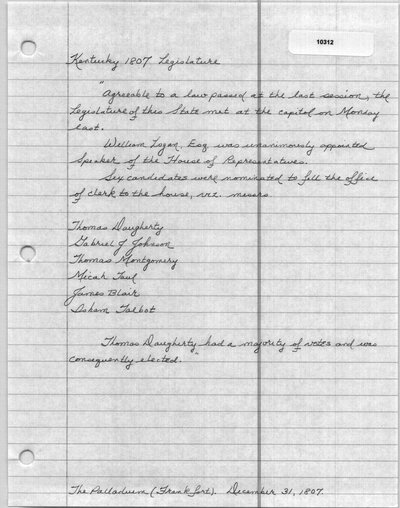 10312
Kentucky 1807 Legislature
"Agreeable to a law passed at the last session, the
Legislature of this State met at the capitol on Monday
last.
William Logan, Esq. was unanimously appointed
Speaker of the House of Representatives.
Six candidates were nominated to fill the office
of clerk to the house, viz. messrs.
Thomas Daugherty
Gabriel J Johnson
Thomas Montgomery
Micah Taul
James Blair
Isham Talbot
Thomas Daugherty had a majority of votes and was
consequently elected."
The Palladium (Frankfort). December 31, 1807.